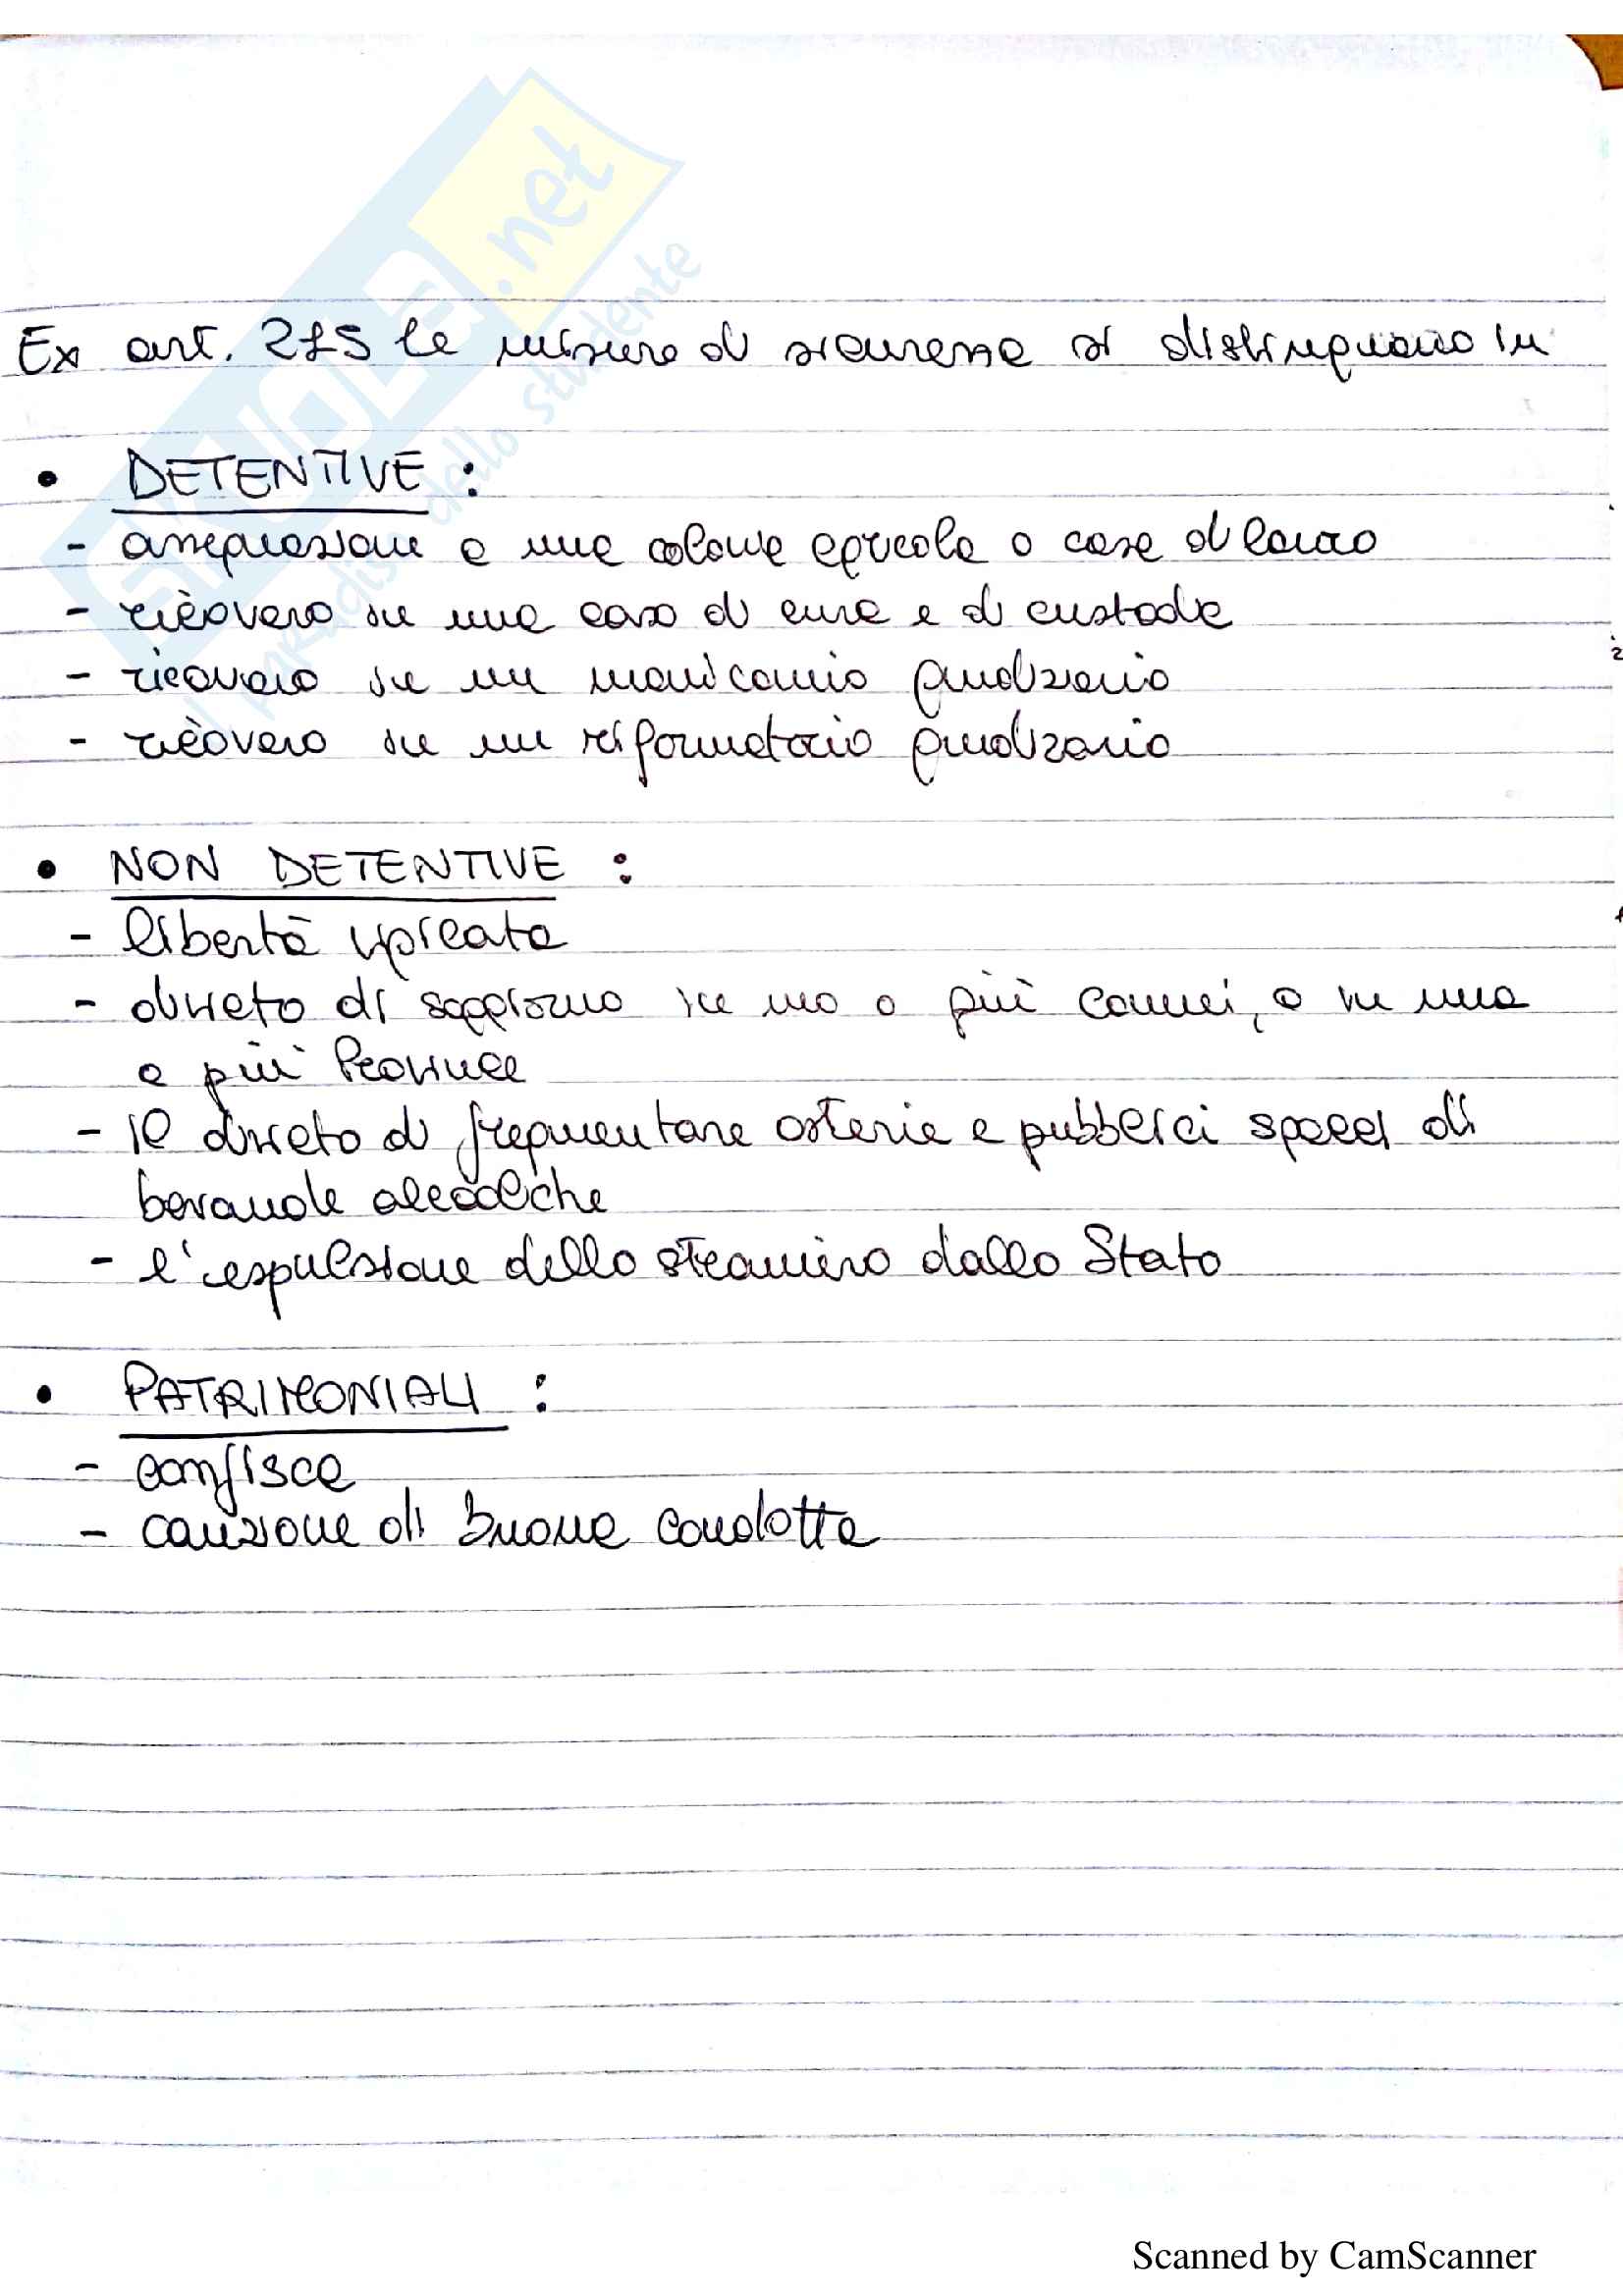 SKUOLa.net
il paradiso dello studente
Ex art. 215 le misure di sicurezza si distinguono in
• DETENTIVE :
- assegnazione a una colonia agricola o casa di lavoro
- ricovero in una casa di cura e di custodia
- ricovero in un manicomio giudiziario
- ricovero in un riformatorio giudiziario
• NON DETENTIVE :
- libertà vigilata
- divieto di soggiorno in uno o più comuni, o in una
o più Province
- il divieto di frequentare osterie e pubblici spacci di
bevande alcooliche
- l'espulsione dello straniero dallo Stato
• PATRIMONIALI :
- confisca
- cauzione di buona condotta
Scanned by CamScanner